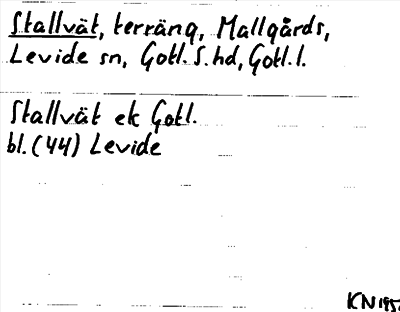 Stallvät, terräng, Mallgårds,
Levide sn, Gotl. S. hd, Gotl. l.
Stallvät ek Gotl.
bl. (44) Levide